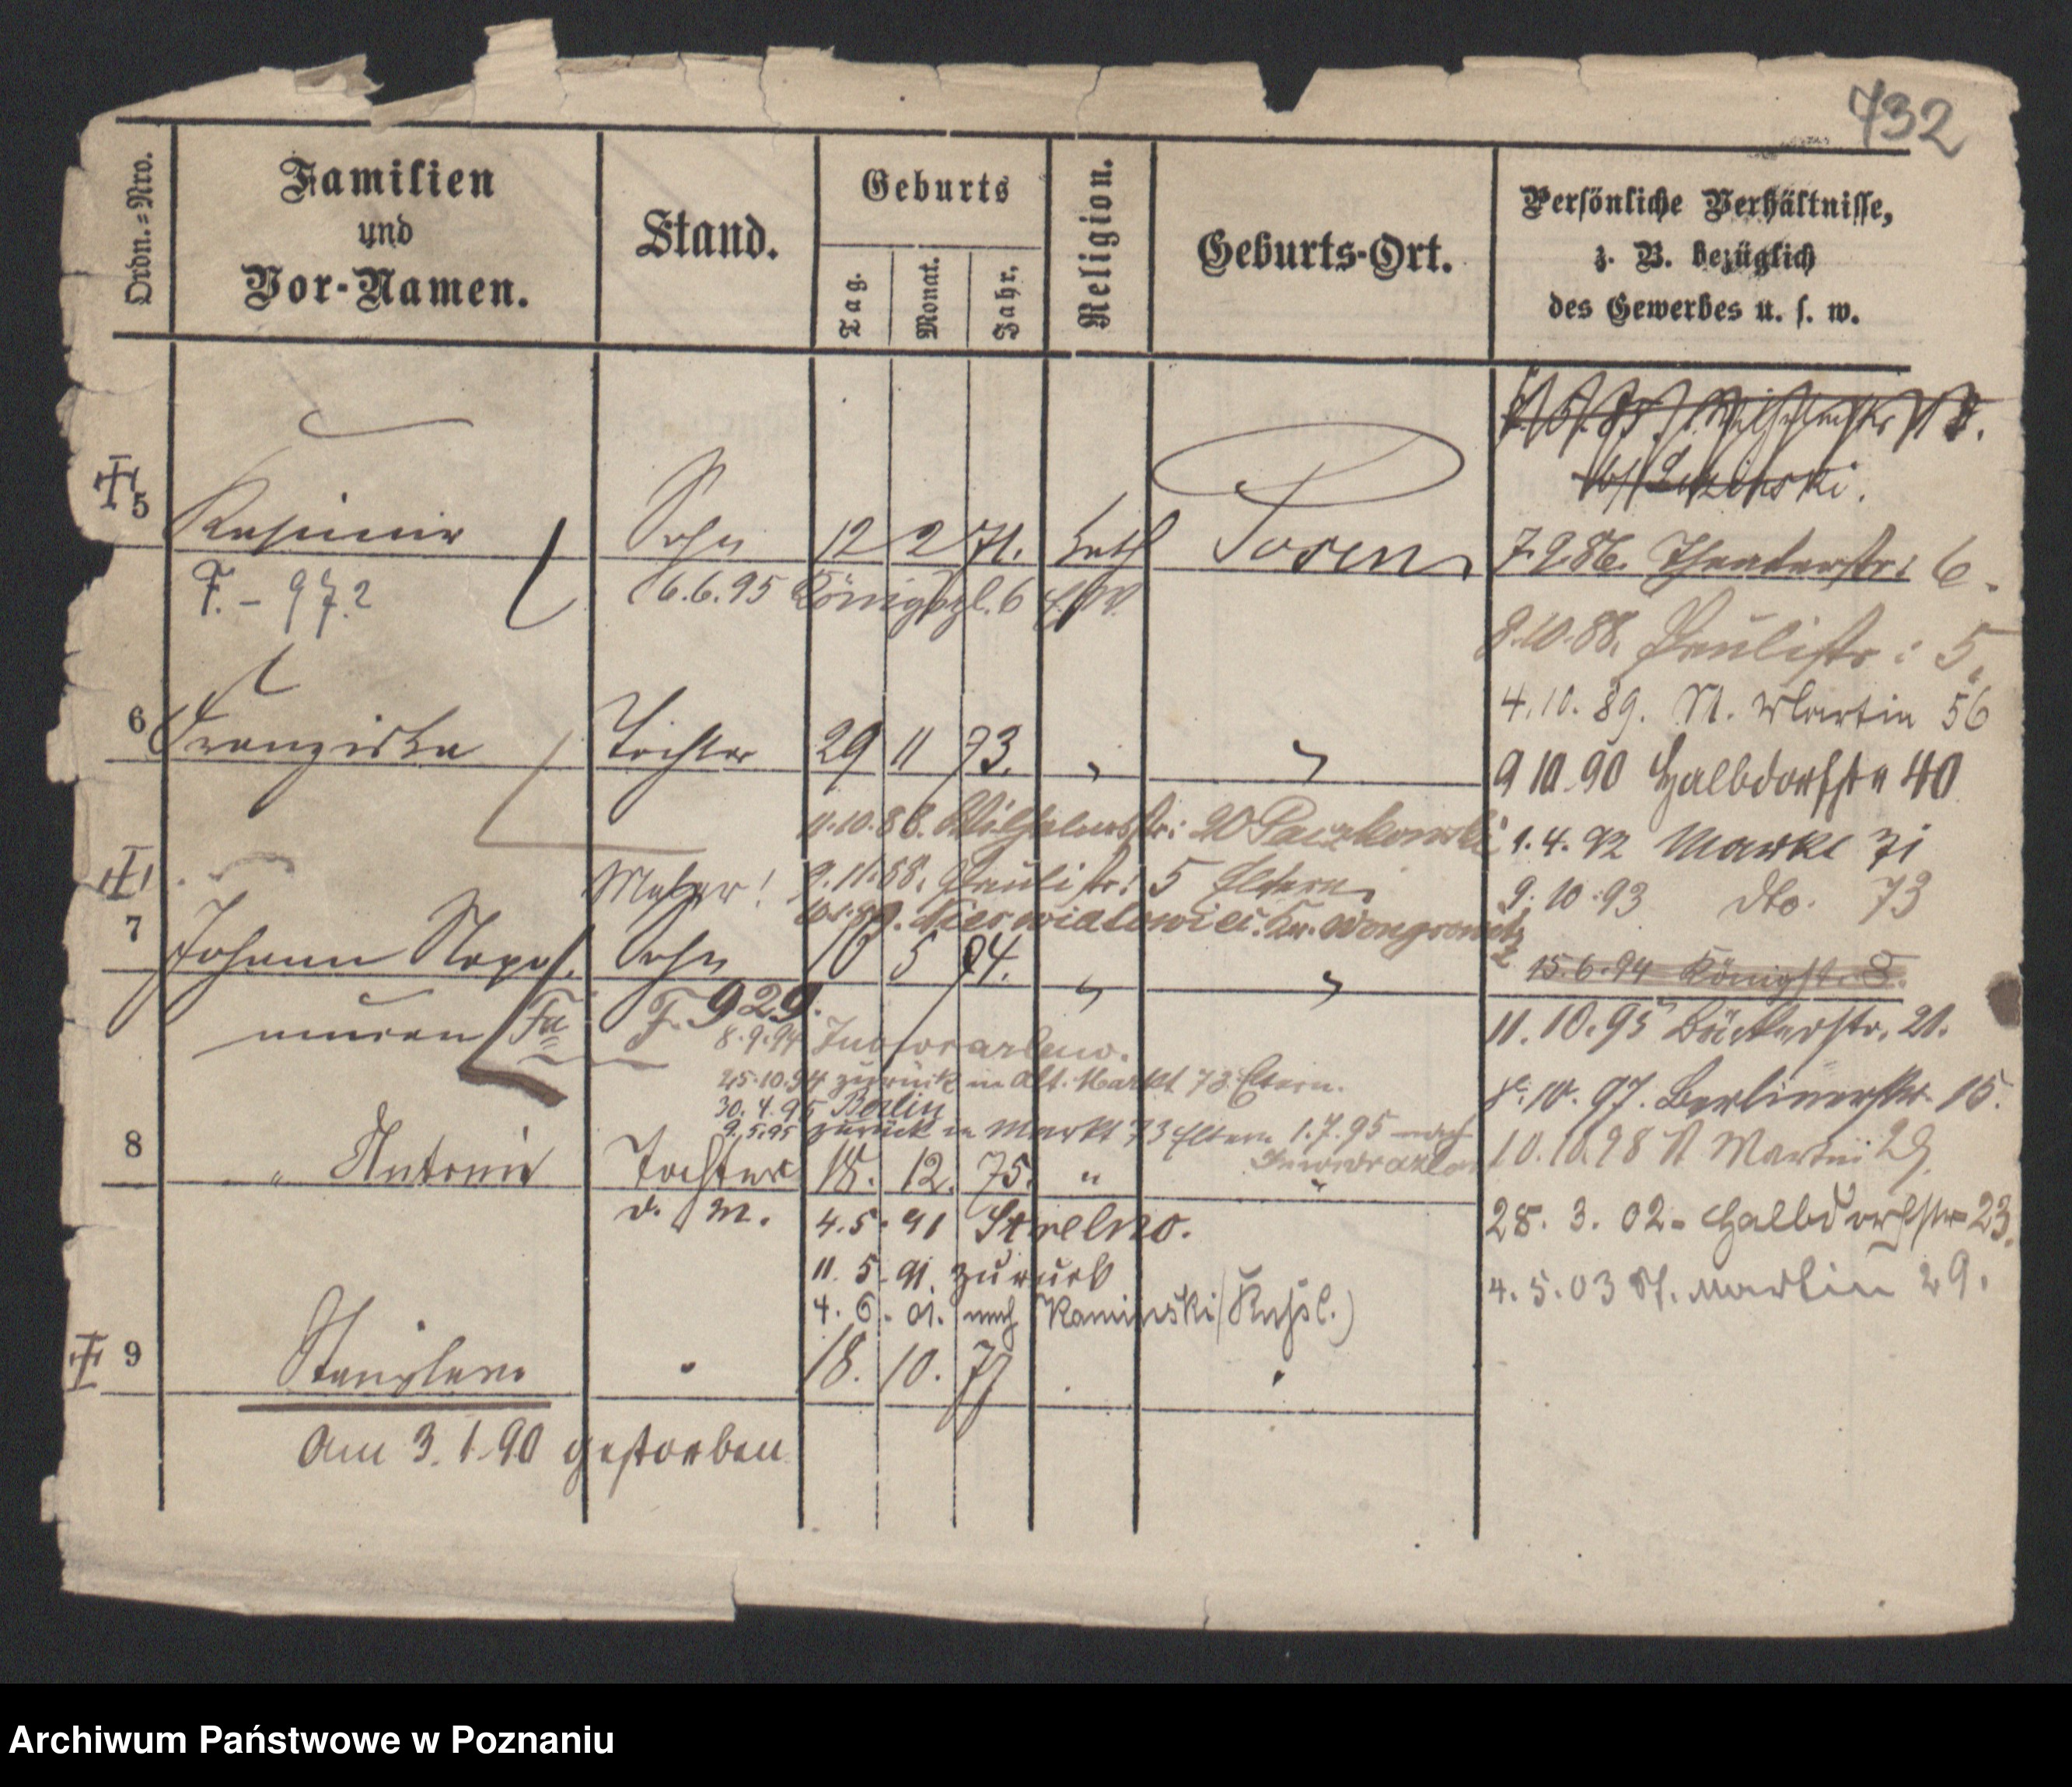 732
Ordn.=Nro.
Familien
und
Vor-Namen.
Stand.
Geburts
Tag.
Monat.
Jahr.
Religion.
Geburts-Ort.
Persönliche Verhältnisse,
z. B. bezüglich
des Gewerbes u. s. w.
5 Kasimir Sohn 12 2 71. kath Posen
7.9.86. Theaterstr: 6.
F. - 972
6.6.95 Königspl. 6
8.10.88. Paulistr: 5.
4.10.89. St. Martin 56
6 Franziska Tochter 29 11 73. " "
9 10 90 Halbdorfstr 40
11.10.88. Wilhelmsstr: 20 Paczkowski
1.4.92 Markt 71
Maler! 9.11.88. Paulistr: 5 Eltern.
9.10.93 dto. 73
Kr. Wongrowitz
7 Johann Nepo= Sohn 16 5 74. " "
15.6.94 Königstr. 8.
mucen F. 929.
11.10.95 Bäckerstr. 21.
8.9.94 Inowrazlaw.
25.10.94 zurück in Alt. Markt 73 Eltern.
30.4.95 Berlin
10.97. Berlinerstr. 15.
9.5.95 zurück in Markt 73 Eltern 1.7.95 nach
Inowrazlaw
8 " Antonie Tochter 18. 12. 75. " "
10.10.98 St Martin 29.
d. M. 4.5.91 Strelno.
28. 3. 02. Halbdorfstr 23.
11. 5. 91. zurück
4.5.03 St. Martin 29.
4. 6. 01. nach Kaminski
9 Stanislaus " 18. 10. 77 " "
Am 3.1.90 gestorben
Archiwum Państwowe w Poznaniu